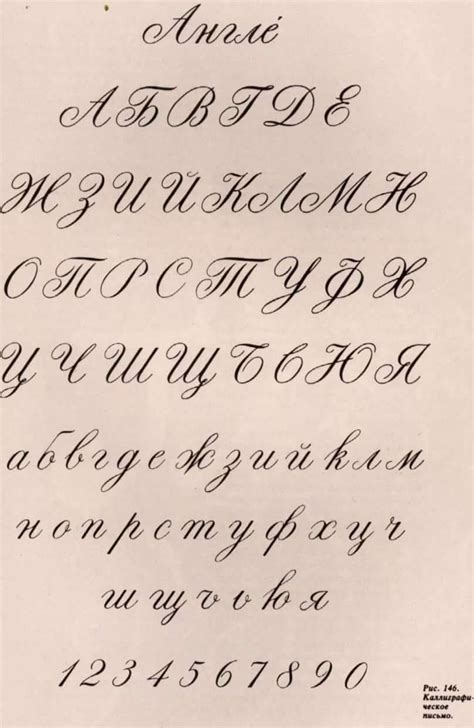 Англе́
АБВГДЕ
ЖЗИЙКЛМН
ОПРСТУФХ
ЦЧШЩЪЬЮЯ
абвгдежзийклм
нопрстуфхцч
шщъьюя
1234567890
Рис. 146.
Каллиграфи-
ческое
письмо.